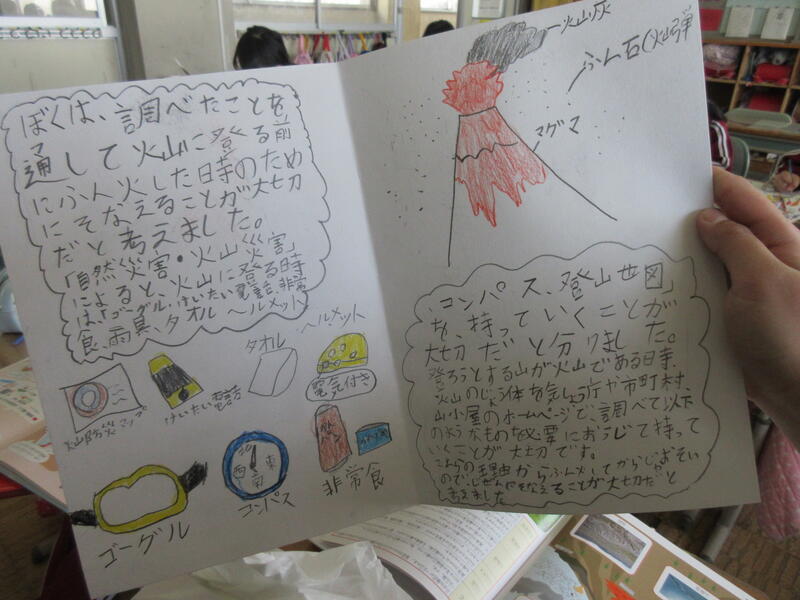 ぼくは、調べたことを
通して火山に登る前
にふん火した日時のため
にそなえることが大切
だと考えました。
「自然災害・火山災害」
によると、火山に登る時
は、「ゴーグル、けいたい電話、非常
食、雨具、タオル、ヘルメット
火山防災マップ
けいたい電話
タオル
ヘルメット
電気付き
ゴーグル
西 東
コンパス
非常食
火山灰
ふん石(火山弾
マグマ
コンパス、登山地図」
を、持っていくことが
大切だと分りました。
登ろうとする山が火山である時、
火山のじょう体を気しょう庁や市町村、
山小屋のホームページで調べて以下
のようなものを必要におうじて持って
いくことが大切です。
これらの理由からふん火してからじゃおそい
ので、じぜんにそなえることが大切だと
考えました